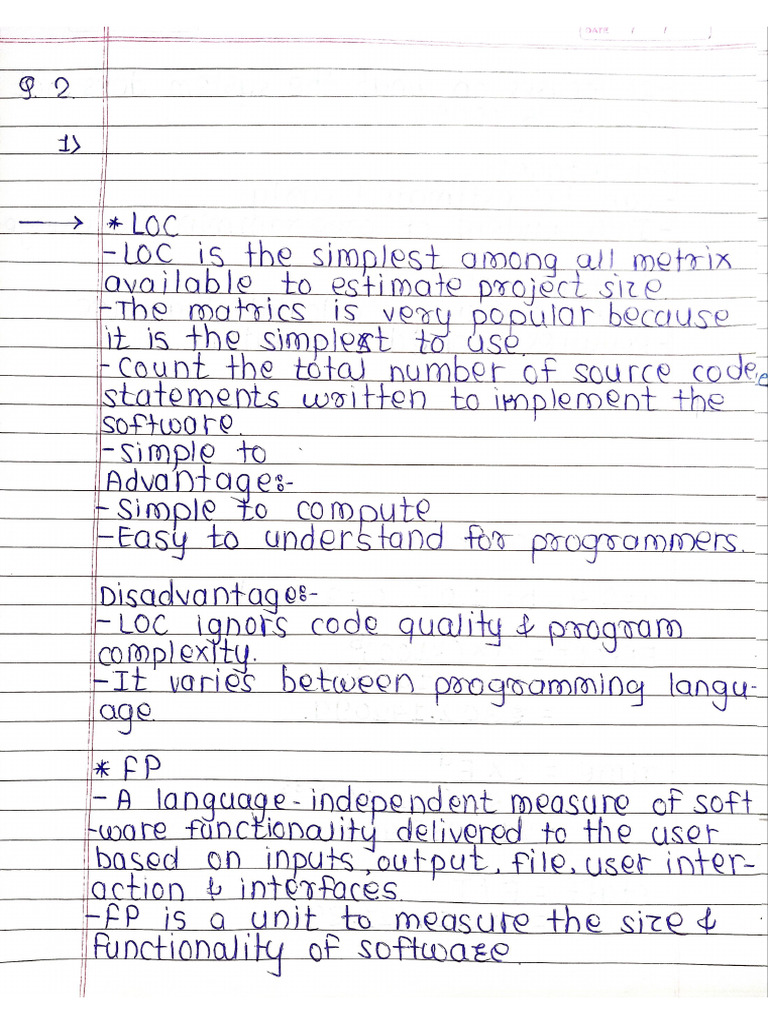 DATE / /
Q. 2
1)
→ * LOC
- LOC is the simplest among all metrix
available to estimate project size.
- The matrics is very popular because
it is the simplest to use.
- Count the total number of source code
statements written to implement the
software.
- Simple to
Advantage:-
- Simple to compute
- Easy to understand for programmers.
Disadvantage:-
- LOC ignors code quality & program
complexity.
- It varies between programming langu-
age.
* FP
- A language-independent measure of soft
-ware functionality delivered to the user
based on inputs, output, file, user inter-
action & interfaces.
- FP is a unit to measure the size &
functionality of software.